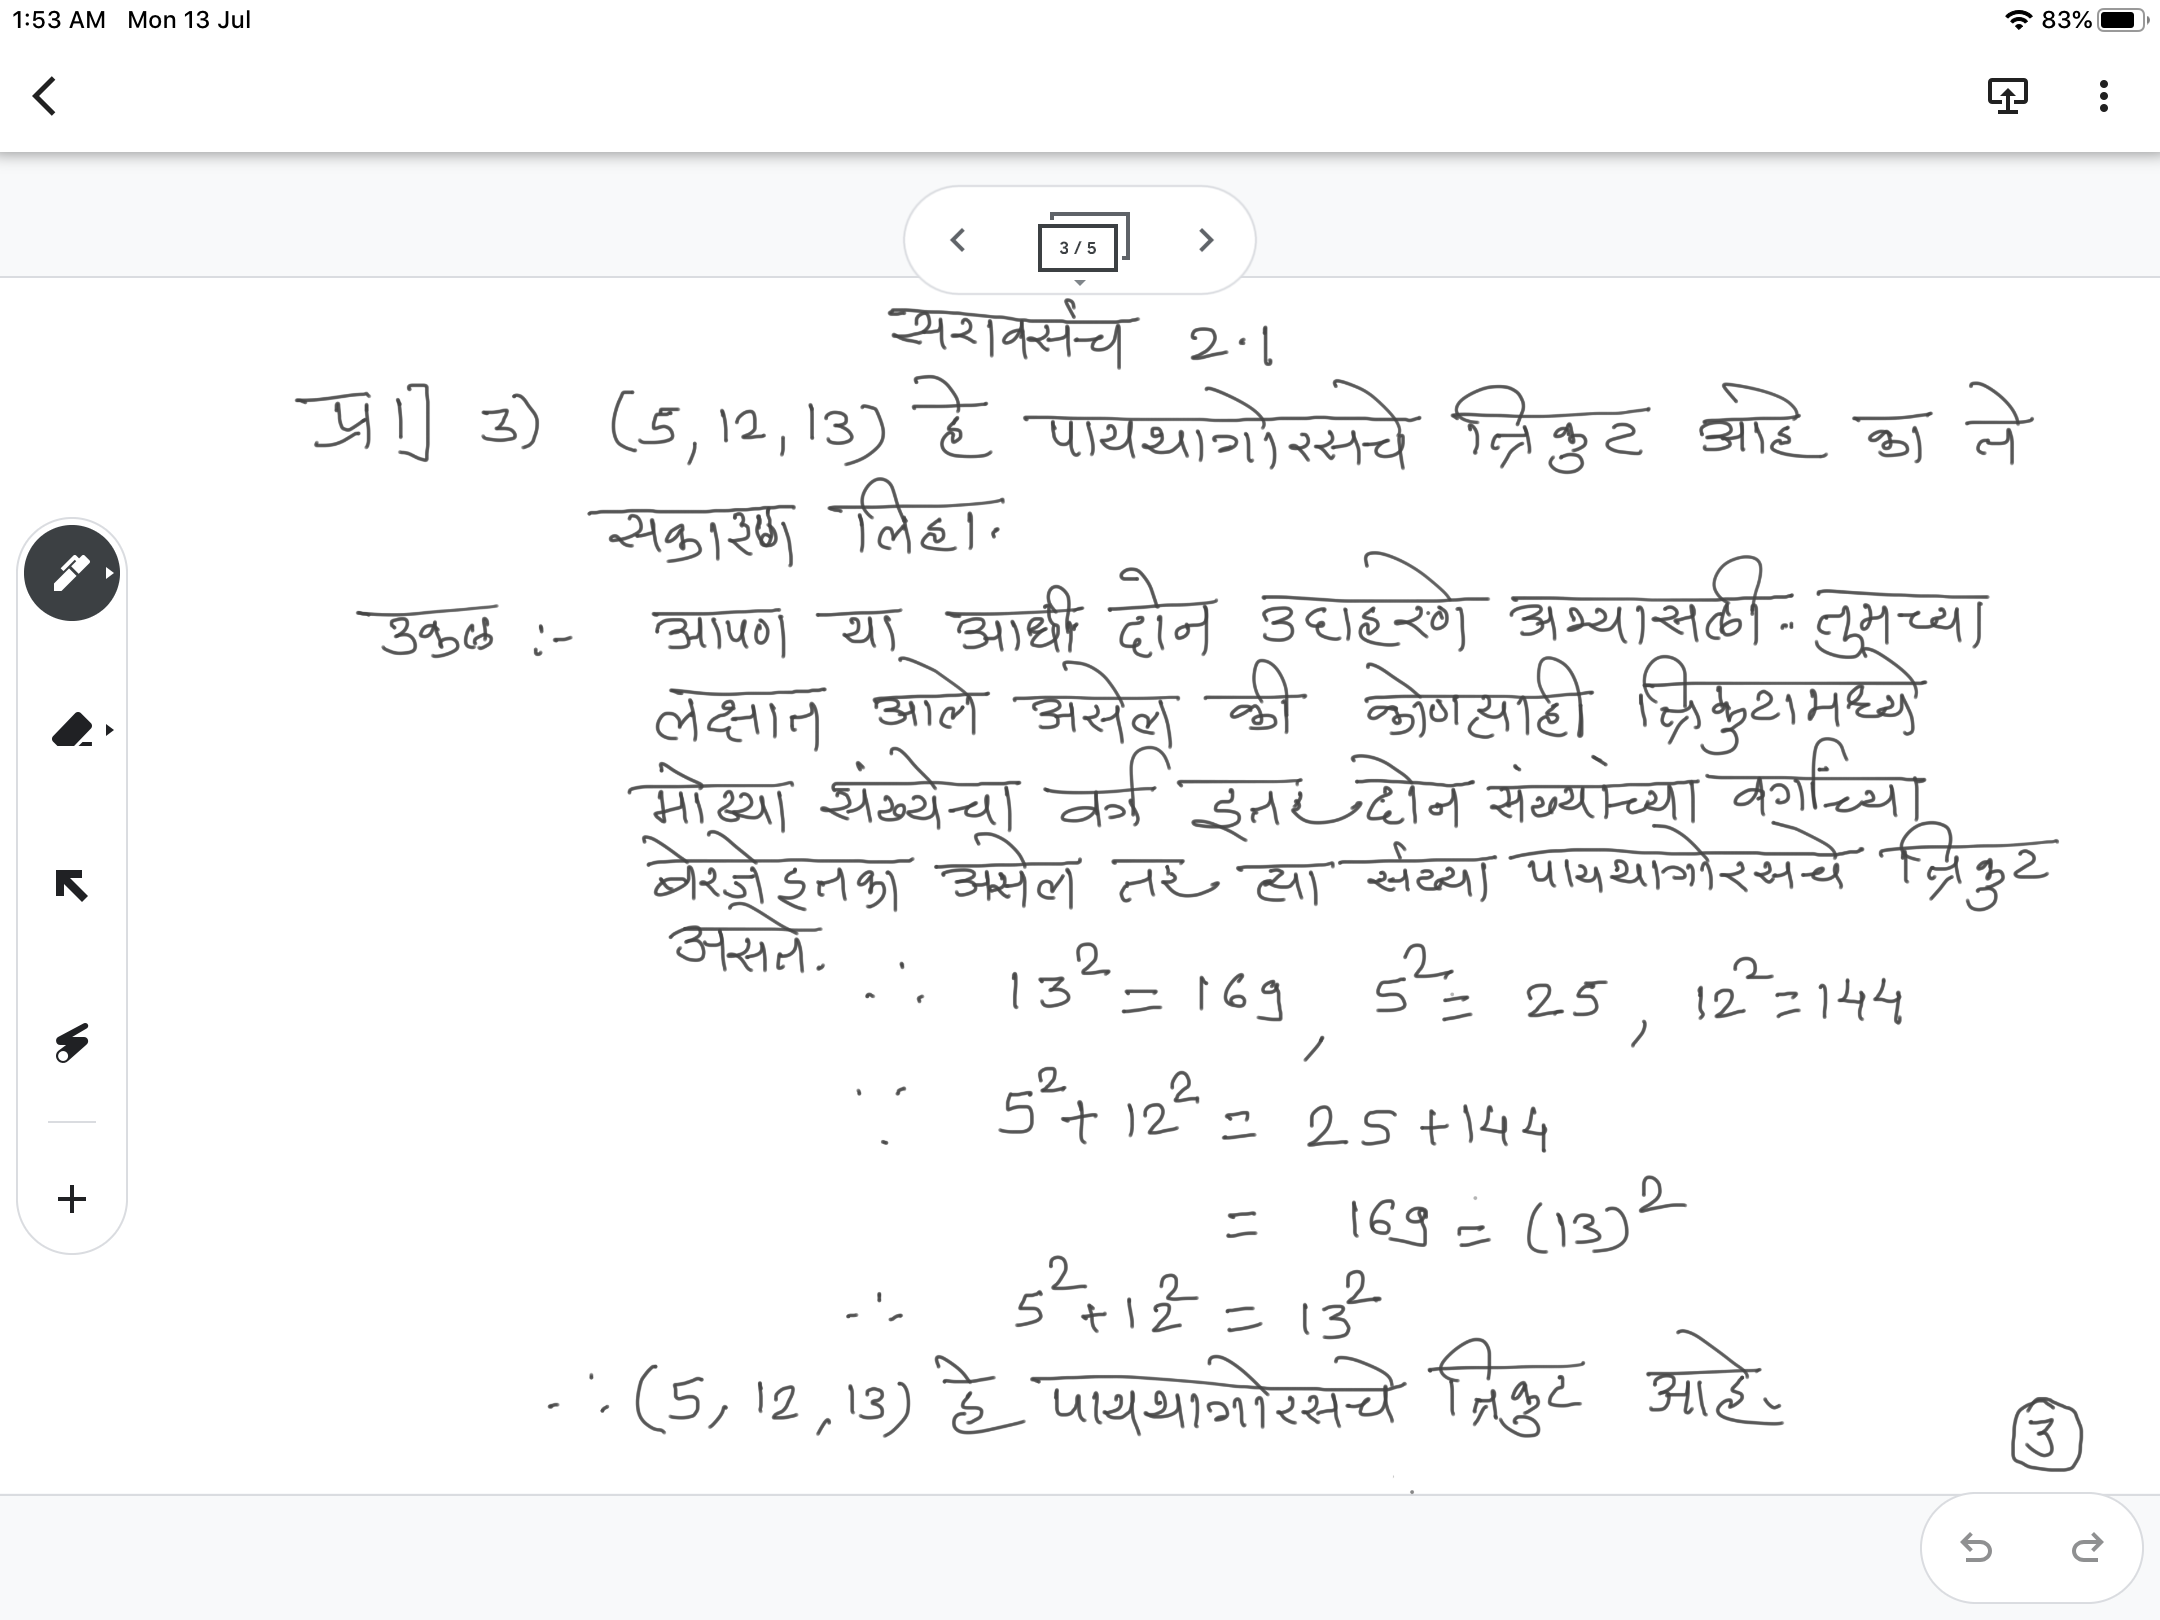 1:53 AM Mon 13 Jul 83%
3 / 5
सरावसंच 2.1
प्र 1] 3) (5, 12, 13) हे पायथागोरसचे त्रिकुट आहे का ते
सकारण लिहा.
उकल :- आपण या आधी दोन उदाहरणे अभ्यासली.. तुमच्या
लक्षात आले असेल की कोणत्याही त्रिकुटामध्ये
मोठ्या संख्येचा वर्ग इतर दोन संख्यांच्या वर्गांच्या
बेरजेइतका असेल तर त्या संख्या पायथागोरसचे त्रिकुट
असते.
∴ 13² = 169, 5² = 25, 12² = 144
∵ 5² + 12² = 25 + 144
= 169 = (13)²
∴ 5² + 12² = 13²
∴ (5, 12, 13) हे पायथागोरसचे त्रिकुट आहे.
3